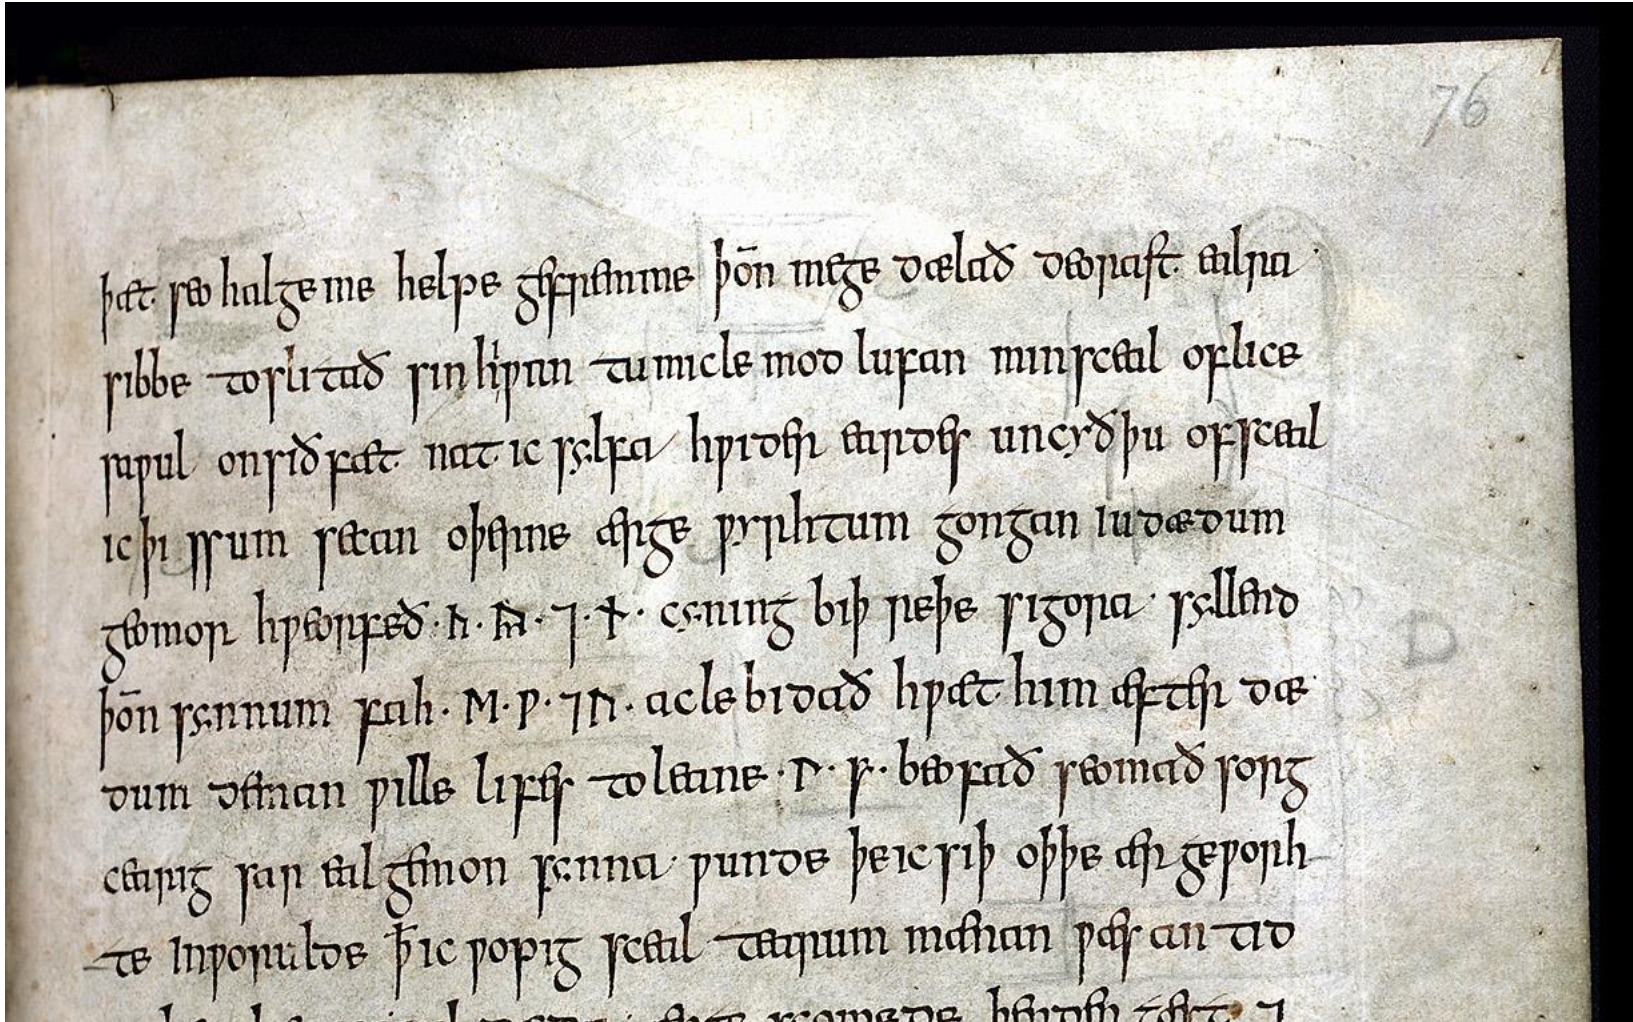 76
þæt seo halge me helpe gefremme þoñ mege dælað deorast ealra
sibbe toslitað sinhiƿan tu micle modlufan min sceal of lice
saƿul on siðfæt nat ic sylfa hƿider eardes uncyðþu of sceal
ic þissum secan oþerne ærge ƿyrhtum gongan iudædum
geomor hƿeorfeð · ᚳ · ᚣ · ⁊ · ᚾ · cyning biþ reþe sigora syllend
þoñ synnum fah · ᛖ · ᚹ · ⁊ ᚢ · acle bidað hƿæt him æfter dæ
dum deman ƿille lifes to leane · ᛚ · ᚠ · beofað seomað sorg
cearig sar eal gemon synna ƿunde þe ic siþ oþþe ær geƿorh
te in ƿorulde ꝥ ic ƿopig sceal tearum mænan ƿæs an tid
D